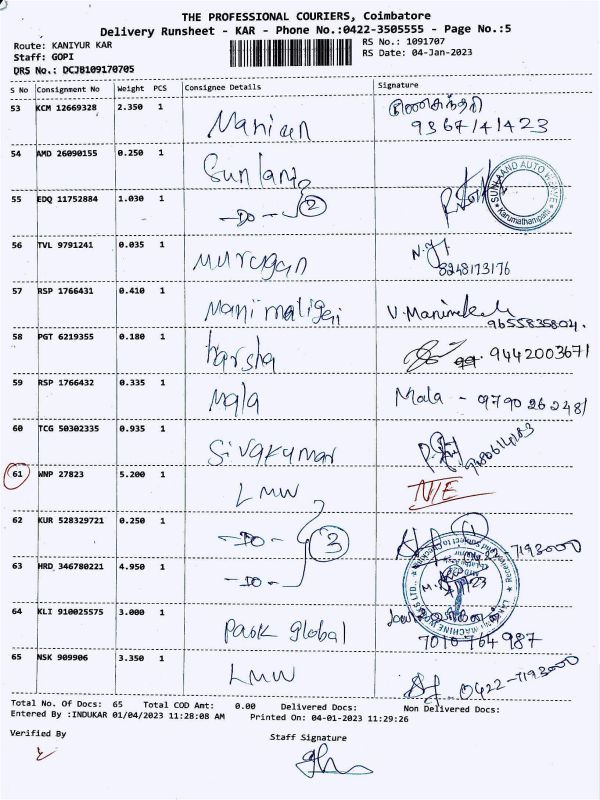 THE PROFESSIONAL COURIERS, Coimbatore
Delivery Runsheet - KAR - Phone No.:0422-3505555 - Page No.:5
Route: KANIYUR KAR
RS No.: 1091707
Staff: GOPI
RS Date: 04-Jan-2023
DRS No.: DCJB109170705
S No Consignment No Weight PCS Consignee Details Signature
53 KCM 12669328 2.350 1 Manian
9367141423
54 AMD 26090155 0.250 1 Sunland
55 EDQ 11752884 1.030 1 -Do- 2
SUNLAAND AUTO
Karumathampatti
56 TVL 9791241 0.035 1 Murugan
8248173176
57 RSP 1766431 0.410 1 Manimaligai
9655835804.
58 PGT 6219355 0.180 1 harsha 9442003671
59 RSP 1766432 0.335 1 Mala Mala - 9790262481
60 TCG 50302335 0.935 1 Sivakumar
61 WNP 27823 5.200 1 LMW N/E
62 KUR 528329721 0.250 1 -Do- 7193000
3
63 HRD 346780221 4.950 1 -Do-
64 KLI 910025575 3.000 1 Park global
7010764987
65 NSK 909906 3.350 1 LMW 0422-7193000
Total No. Of Docs: 65 Total COD Amt: 0.00 Delivered Docs: Non Delivered Docs:
Entered By :INDUKAR 01/04/2023 11:28:08 AM Printed On: 04-01-2023 11:29:26
Verified By
Staff Signature